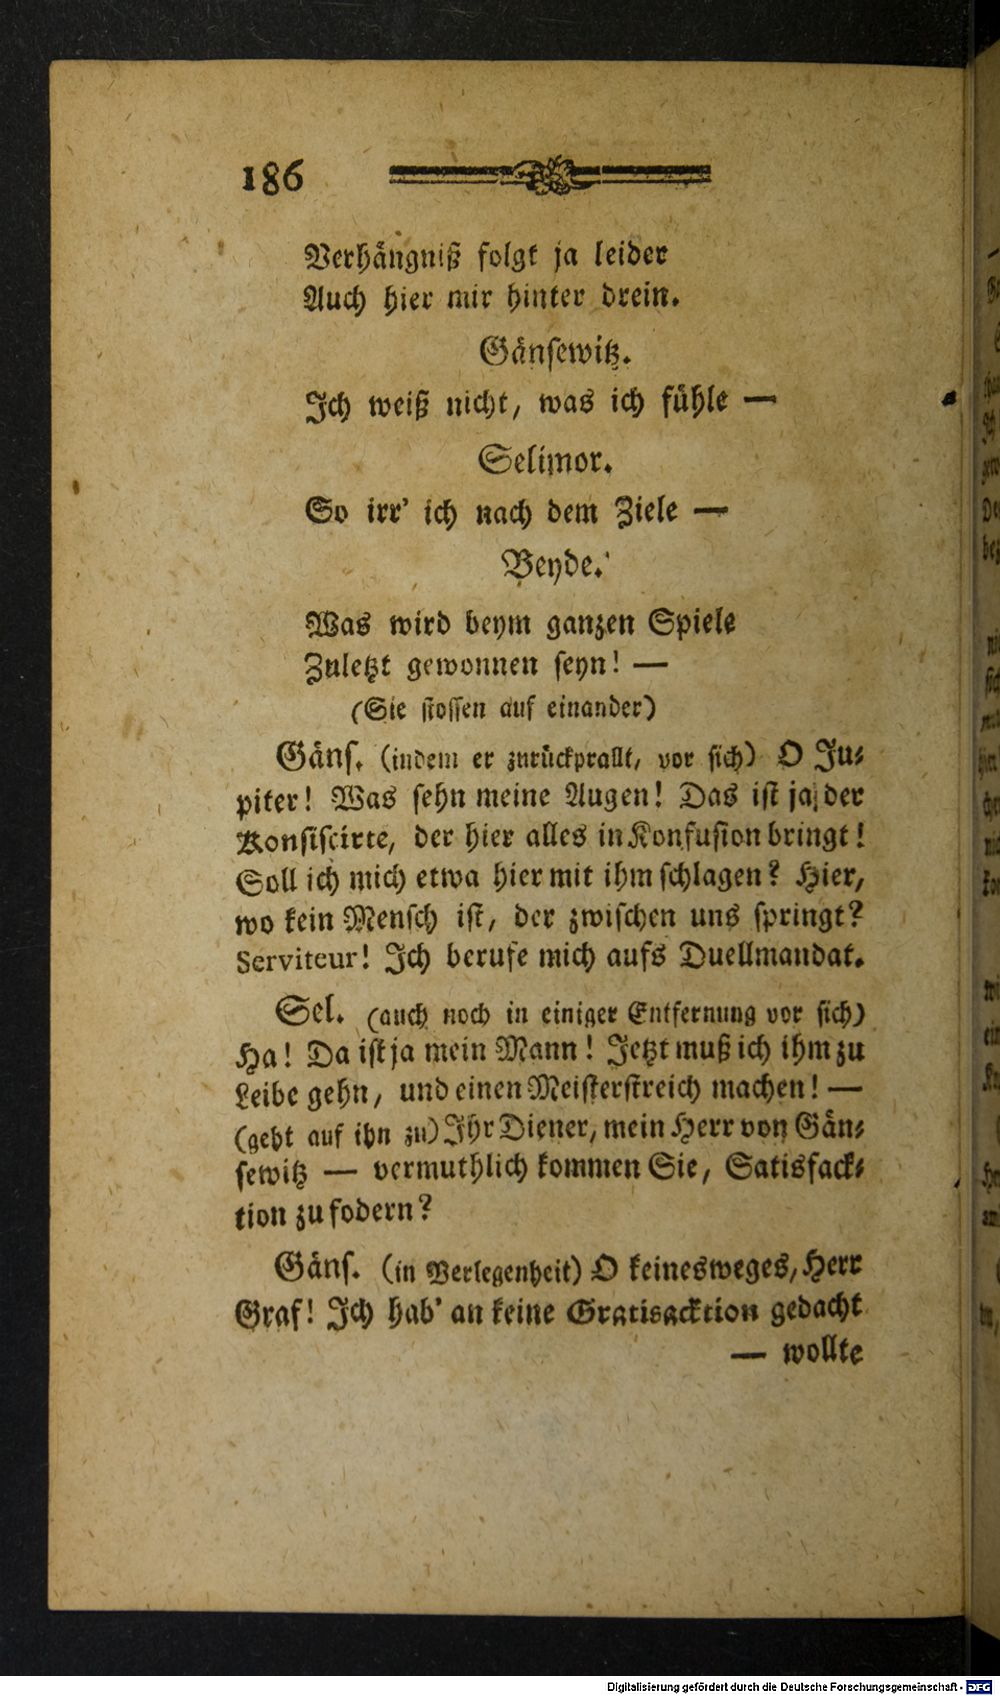 186
Verhängniß folgt ja leider
Auch hier mir hinter drein.
Gänsewitz.
Ich weiß nicht, was ich fühle —
Selimor.
So irr' ich nach dem Ziele —
Beyde.
Was wird beym ganzen Spiele
Zuletzt gewonnen seyn! —
(Sie stossen auf einander)
Gäns. (indem er zurückprallt, vor sich) O Ju-
piter! Was sehn meine Augen! Das ist ja der
Konfiscirte, der hier alles in Konfusion bringt!
Soll ich mich etwa hier mit ihm schlagen? Hier,
wo kein Mensch ist, der zwischen uns springt?
Serviteur! Ich berufe mich aufs Duellmandat.
Sel. (auch noch in einiger Entfernung vor sich)
Ha! Da ist ja mein Mann! Jetzt muß ich ihm zu
Leibe gehn, und einen Meisterstreich machen! —
(geht auf ihn zu) Ihr Diener, mein Herr von Gän-
sewitz — vermuthlich kommen Sie, Satisfack-
tion zu fodern?
Gäns. (in Verlegenheit) O keinesweges, Herr
Graf! Ich hab' an keine Gratisacktion gedacht
— wollte
Digitalisierung gefördert durch die Deutsche Forschungsgemeinschaft - DFG